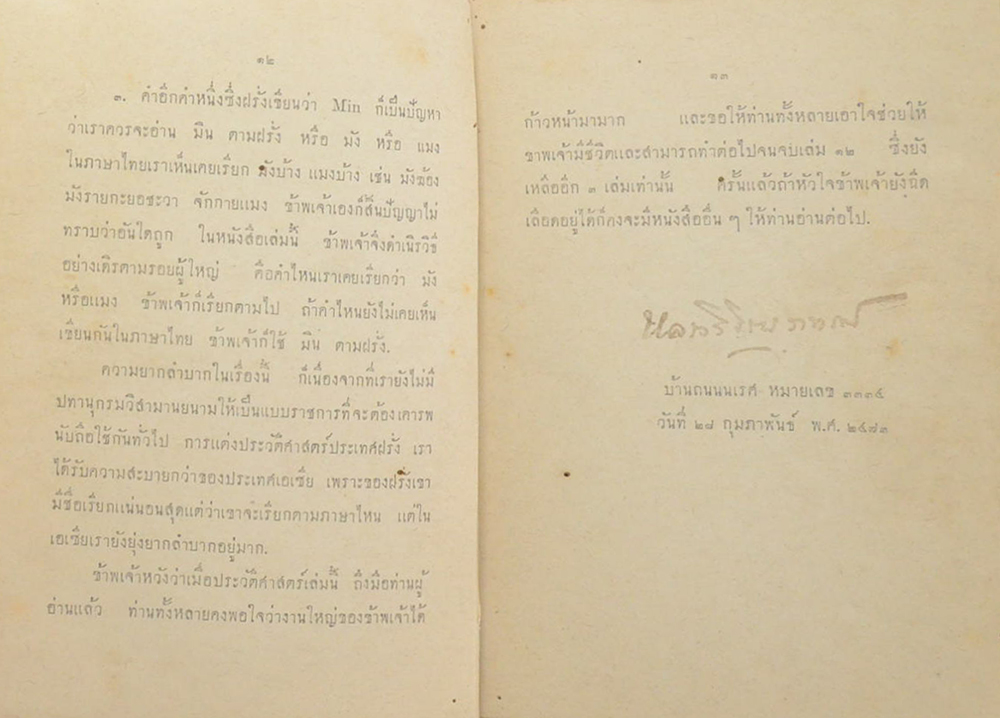 ๑๒
๓. คำอีกคำหนึ่งซึ่งฝรั่งเขียนว่า Min ก็เป็นปัญหา
ว่าเราควรจะอ่าน มิน ตามฝรั่ง หรือ มัง หรือ แมง
ในภาษาไทยเราเห็นเคยเรียก มังบ้าง แมงบ้าง เช่น มังฆ้อง
มังรายกะยอชะวา จักกายแมง ข้าพเจ้าเองก็สิ้นปัญญาไม่
ทราบว่าอันใดถูก ในหนังสือเล่มนี้ ข้าพเจ้าจึงดำเนิรวิธี
อย่างเดิรตามรอยผู้ใหญ่ คือคำไหนเราเคยเรียกว่า มัง
หรือแมง ข้าพเจ้าก็เรียกตามไป ถ้าคำไหนยังไม่เคยเห็น
เขียนกันในภาษาไทย ข้าพเจ้าก็ใช้ มิน ตามฝรั่ง.
ความยากลำบากในเรื่องนี้ ก็เนื่องจากที่เรายังไม่มี
ปทานุกรมวิสามานยนามให้เป็นแบบราชการที่จะต้องเคารพ
นับถือใช้กันทั่วไป การแต่งประวัติศาสตร์ประเทศฝรั่ง เรา
ได้รับความสะบายกว่าของประเทศเอเซีย เพราะของฝรั่งเขา
มีชื่อเรียกแน่นอนสุดแต่ว่าเขาจะเรียกตามภาษาไหน แต่ใน
เอเซียเรายังยุ่งยากลำบากอยู่มาก.
ข้าพเจ้าหวังว่าเมื่อประวัติศาสตร์เล่มนี้ ถึงมือท่านผู้
อ่านแล้ว ท่านทั้งหลายคงพอใจว่างานใหญ่ของข้าพเจ้าได้
๑๓
ก้าวหน้ามามาก และขอให้ท่านทั้งหลายเอาใจช่วยให้
ข้าพเจ้ามีชีวิตและสามารถทำต่อไปจนจบเล่ม ๑๒ ซึ่งยัง
เหลืออีก ๓ เล่มเท่านั้น ครั้นแล้วถ้าหัวใจข้าพเจ้ายังฉีด
เลือดอยู่ได้ก็คงจะมีหนังสืออื่น ๆ ให้ท่านอ่านต่อไป.
บ้านถนนนเรศ หมายเลข ๓๓๓๕
วันที่ ๒๘ กุมภาพันธ์ พ.ศ. ๒๔๘๓